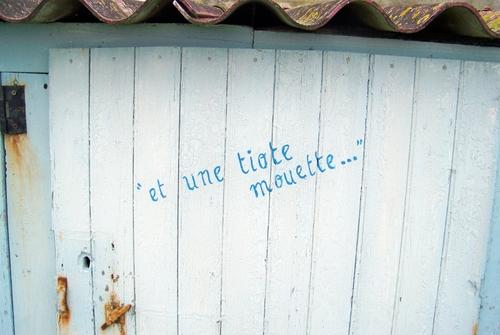 "et une tiote
mouette..."